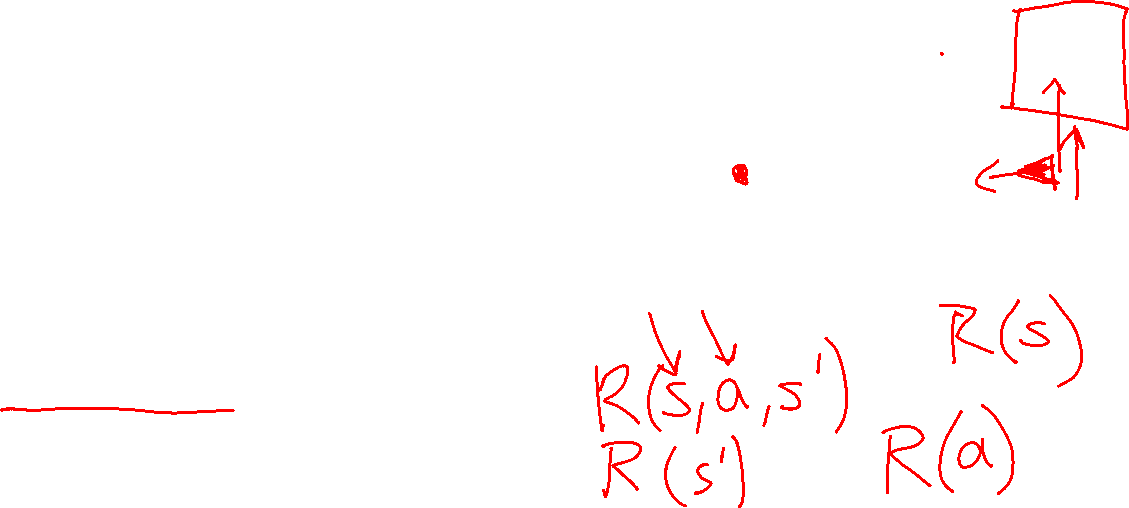 R(s)
R(s,a,s')
R(s') R(a)